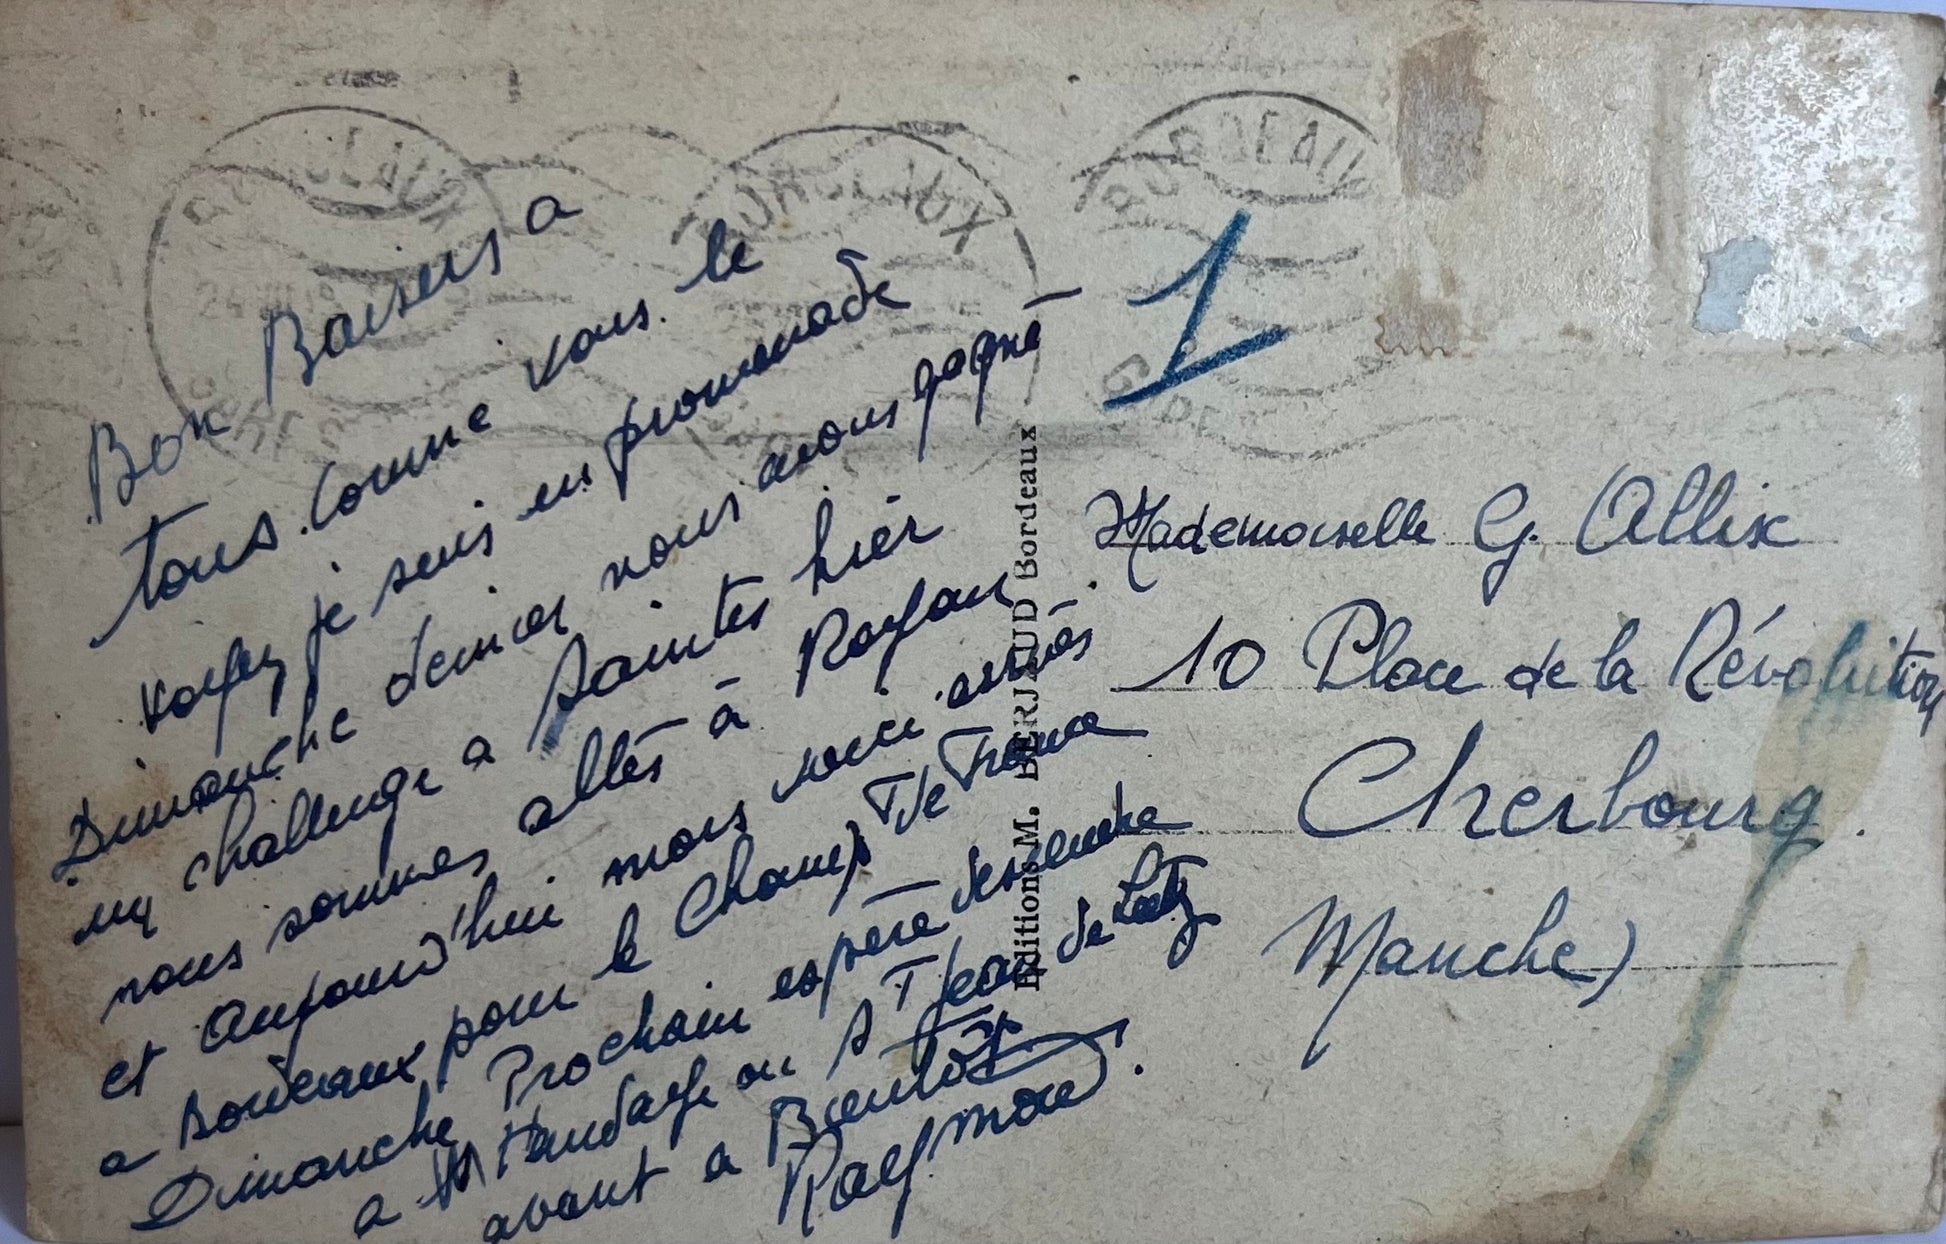 BORDEAUX
BORDEAUX
BORDEAUX
GIRONDE
1
Bon Baisers a
tous. Comme vous le
voyez je suis en promenade
Dimanche dernier nous avons gagné
un challenge a Saintes hier
nous sommes allés à Royan
et aujourd'hui nous arrivés
a Bordeaux pour le Champ T de France
Dimanche Prochain espère descendre
a Handaye ou S T Jean de Lutz
avant a Bientôt
Raymond.
Editions M. BERJAUD Bordeaux
Mademoiselle G. Allix
10 Place de la Révolution
Cherbourg.
Manche)